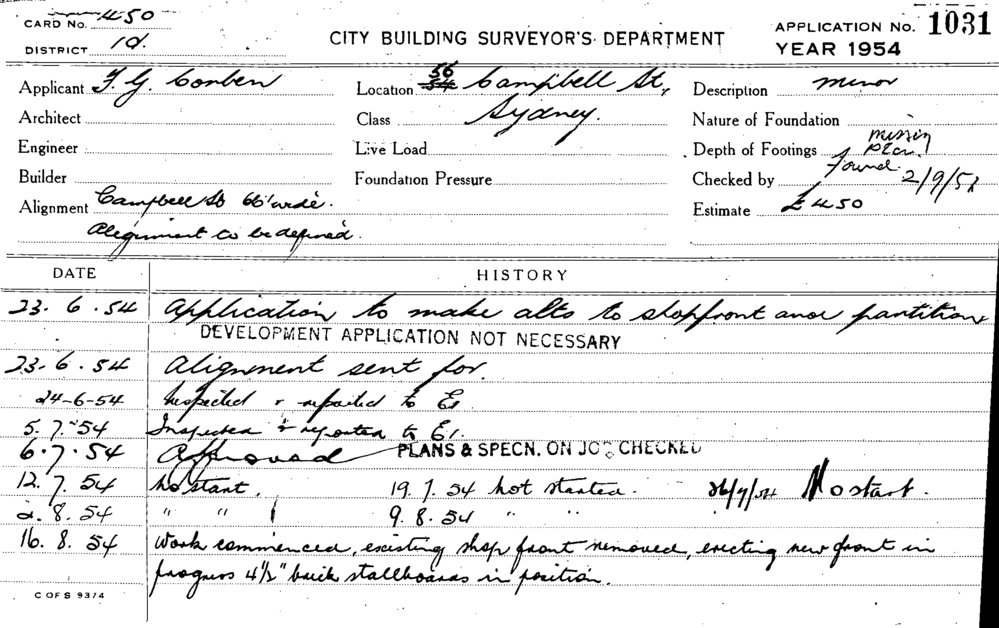 CARD No. 450
DISTRICT 1d.
CITY BUILDING SURVEYOR'S DEPARTMENT
APPLICATION No. 1031
YEAR 1954
Applicant F. G. Corben
Architect
Engineer
Builder
Alignment Campbell St 66' wide.
Alignment to be defined.
Location 54 56 Campbell St,
Class Sydney.
Live Load
Foundation Pressure
Description Minor
Nature of Foundation
Depth of Footings missing plan
Checked by found 2/9/57
Estimate £450
DATE HISTORY
23. 6. 54 Application to make alts to shopfront and partition
DEVELOPMENT APPLICATION NOT NECESSARY
23. 6. 54 Alignment sent for.
24-6-54 Inspected & reported to E1
5. 7. 54 Inspected & reported to E1.
6. 7. 54 Approved PLANS & SPECN. ON JOB CHECKED
12. 7. 54 No start. 19. 7. 54 Not started. 26/7/54 No start.
2. 8. 54 " " 9. 8. 54 " "
16. 8. 54 Work commenced, existing shop front removed, erecting new front in
progress 4½" brick stallboards in position.
C OF S 9374